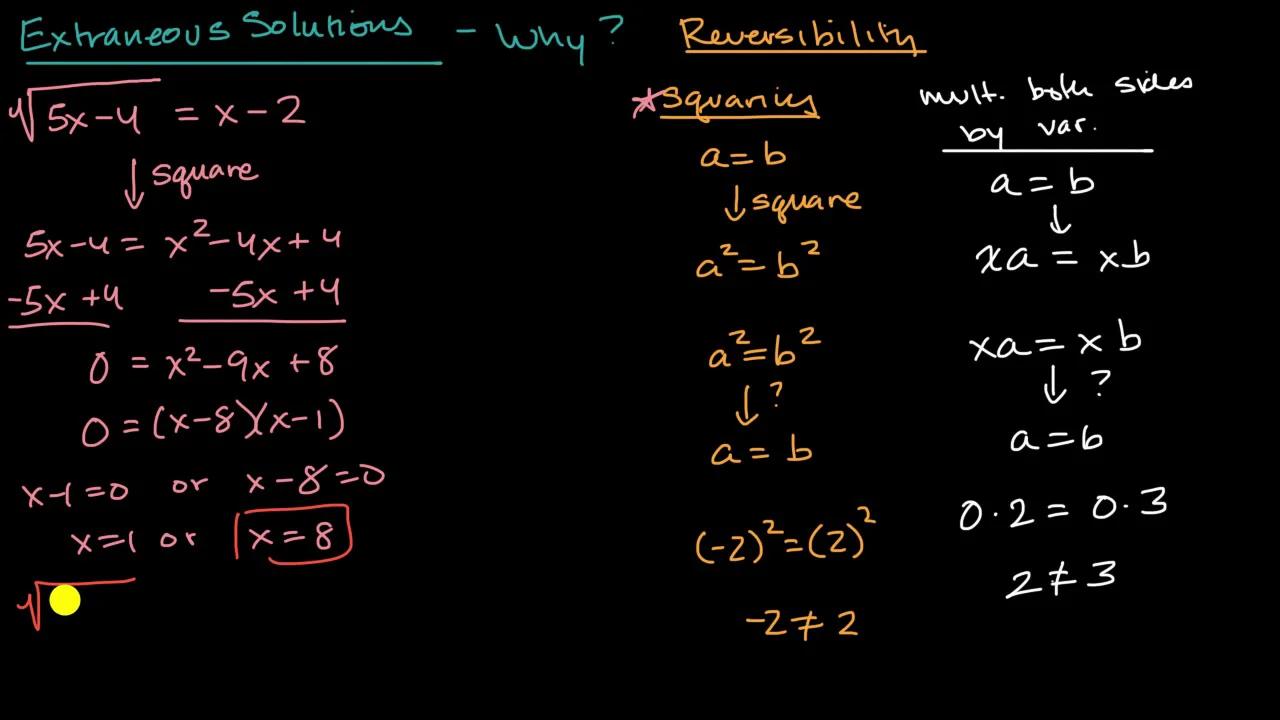 Extraneous Solutions - Why?
√5x-4 = x-2
↓ square
5x-4 = x²-4x+4
-5x +4 -5x +4
0 = x²-9x +8
0 = (x-8)(x-1)
x-1=0 or x-8=0
x=1 or x=8
√
Reversibility
*Squaring
a=b
↓ square
a²=b²
a²=b²
↓ ?
a = b
(-2)²=(2)²
-2≠2
mult. both sides
by var.
a=b
↓
xa = xb
xa = xb
↓ ?
a=b
0·2 = 0·3
2≠3